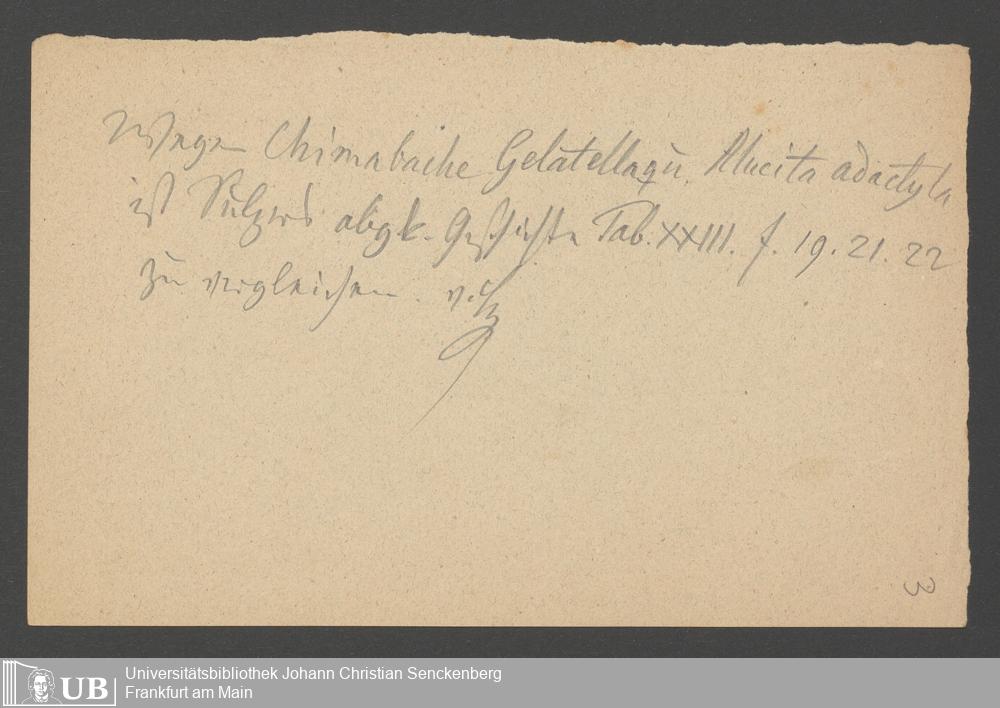 Wegen Chimabache Gelatella qu. Alucita adactyla
ist Sulzers abgk. Geschichte Tab. XXIII. f. 19. 21. 22
zu vergleichen.
3
UB
Universitätsbibliothek Johann Christian Senckenberg
Frankfurt am Main